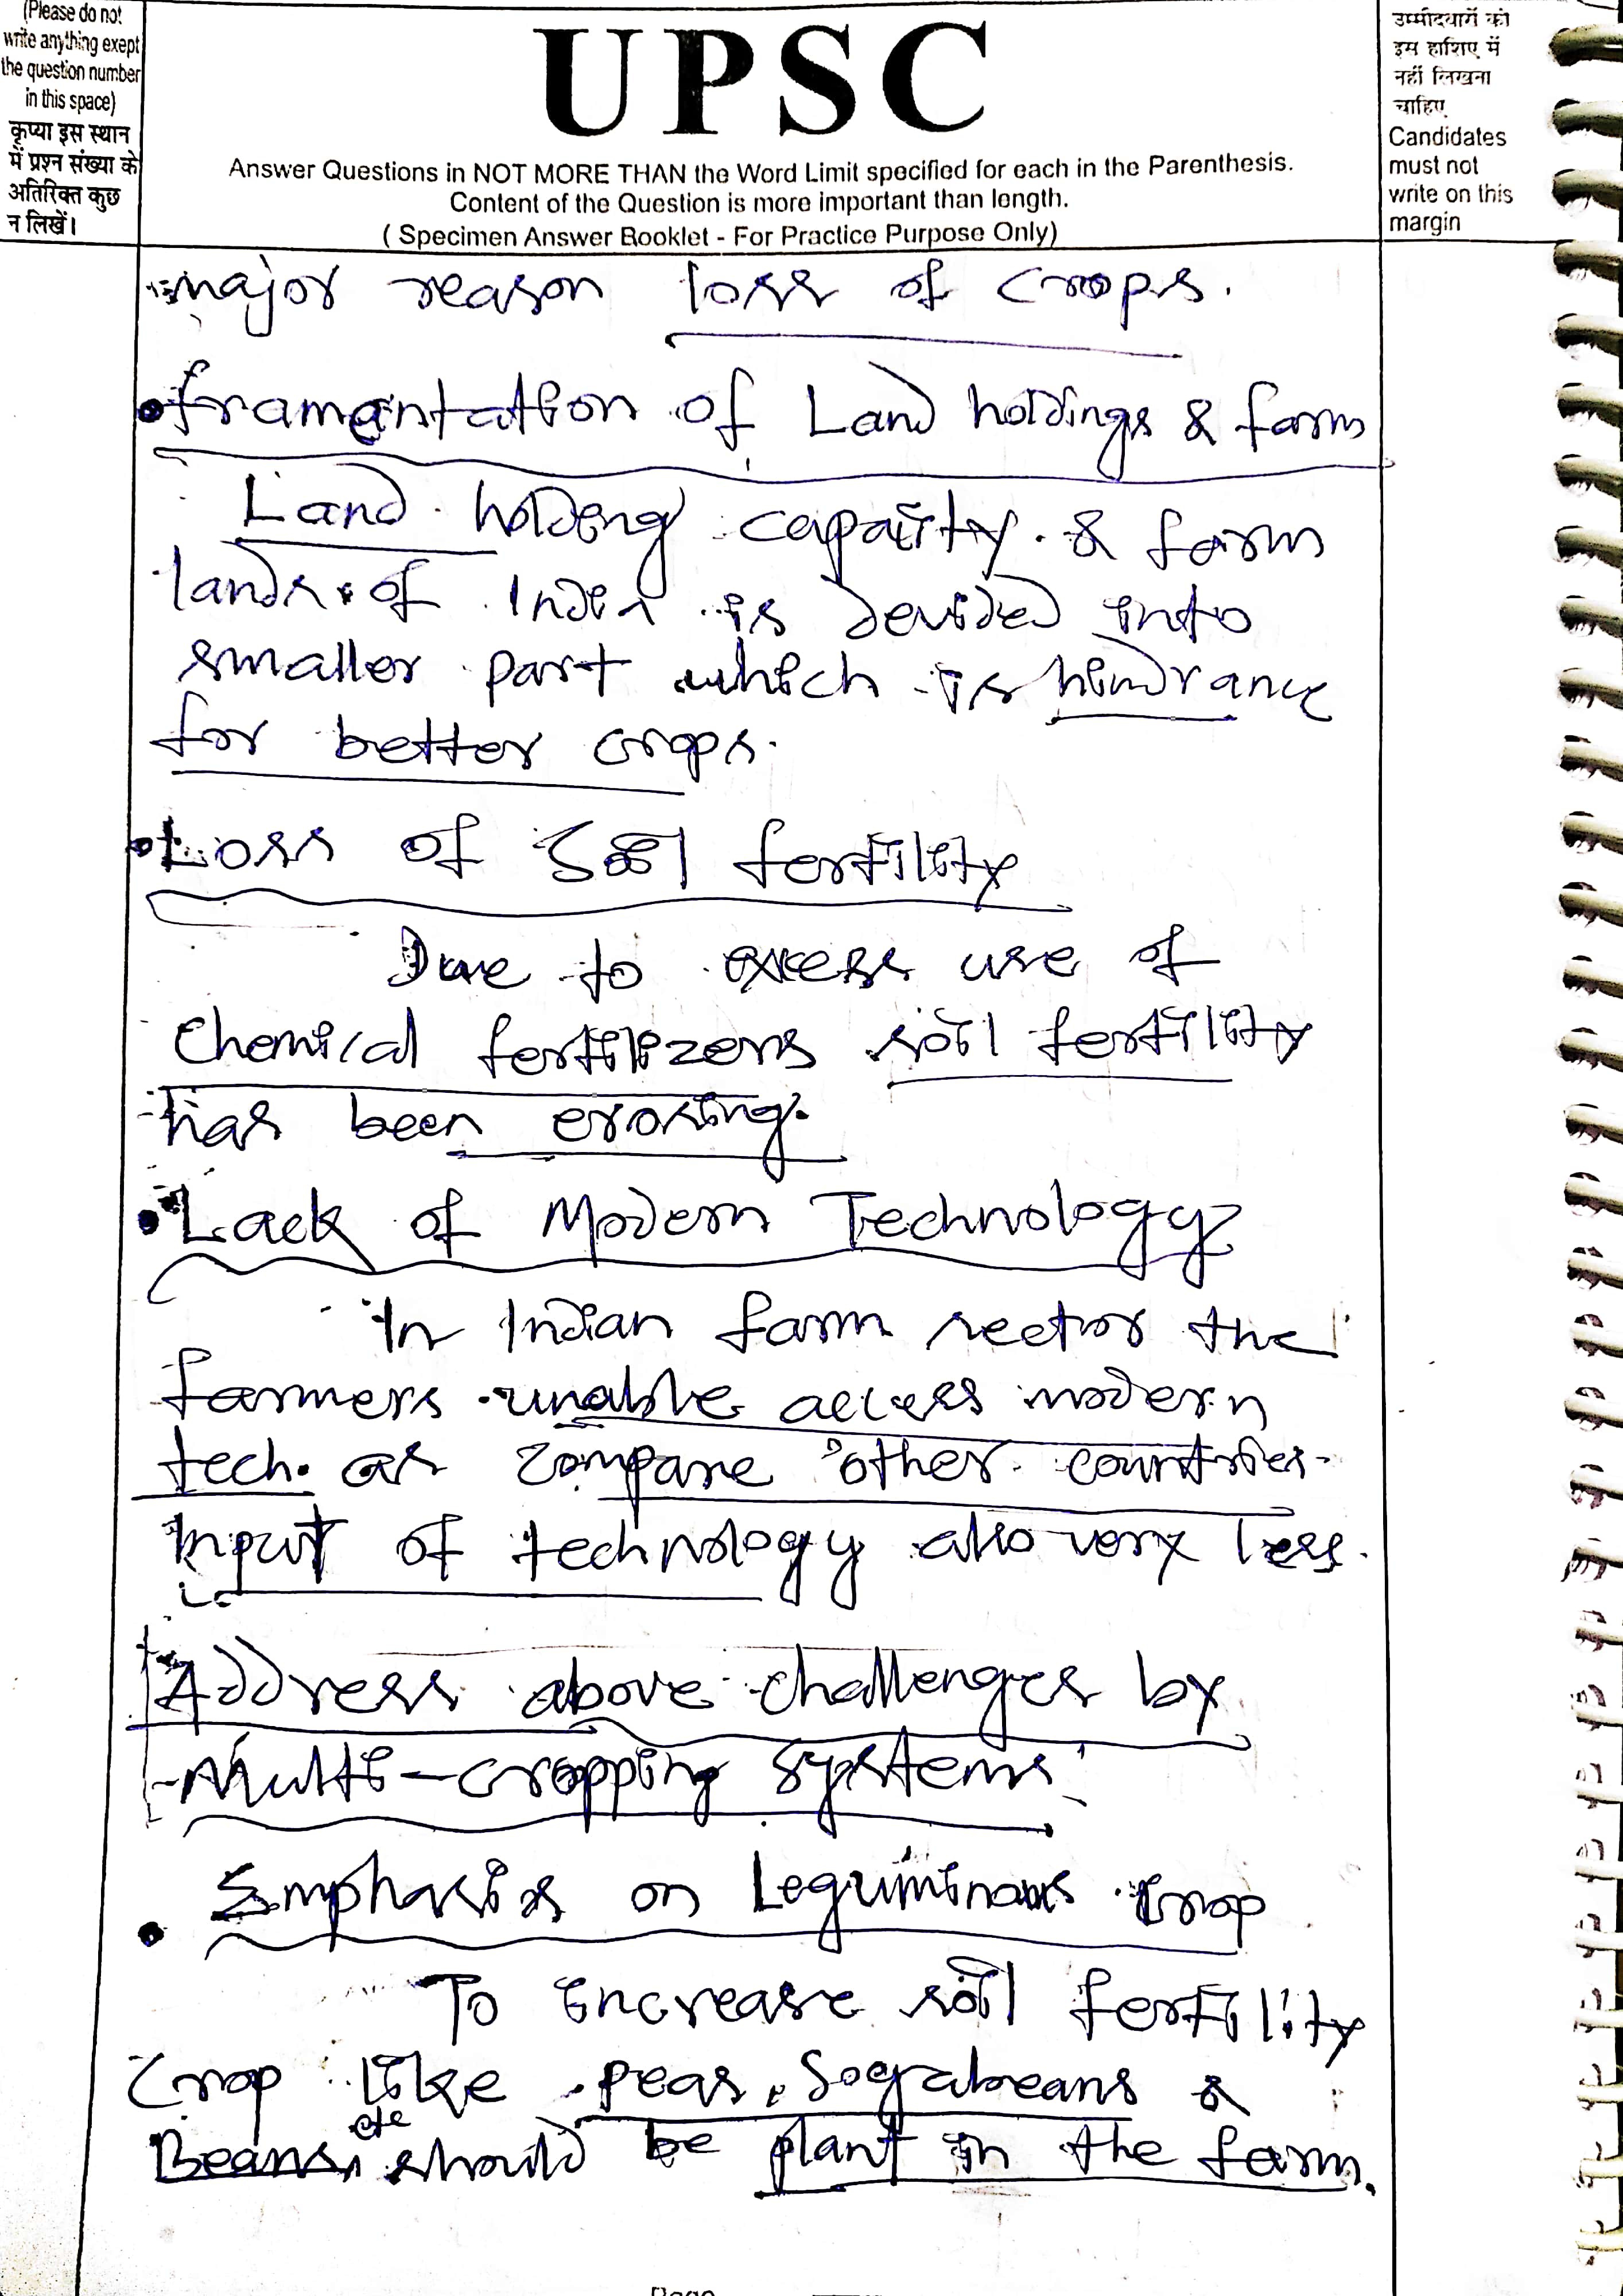 (Please do not
write anything exept
the question number
in this space)
कृप्या इस स्थान
में प्रश्न संख्या के
अतिरिक्त कुछ
न लिखें।
UPSC
Answer Questions in NOT MORE THAN the Word Limit specified for each in the Parenthesis.
Content of the Question is more important than length.
( Specimen Answer Booklet - For Practice Purpose Only)
उम्मीदवारों को
इस हाशिए में
नहीं लिखना
चाहिए
Candidates
must not
write on this
margin
major reason loss of crops.
• framentation of Land holdings & farm
Land holding capacity & farm
lands of India is devided into
smaller part which is hindrance
for better crops.
• Loss of Soil fertility
Due to excess use of
Chemical fertilizers soil fertility
has been erosing.
• Lack of Modern Technology
In Indian farm sector the
farmers unable access modern
tech. as compare other countries.
Input of technology also very less.
Address above challenges by
Multi-cropping systems
• Emphasis on Leguminous crop
To increase soil fertility
Crop like peas, Soyabeans &
Beans, etc should be plant in the farm.
Page